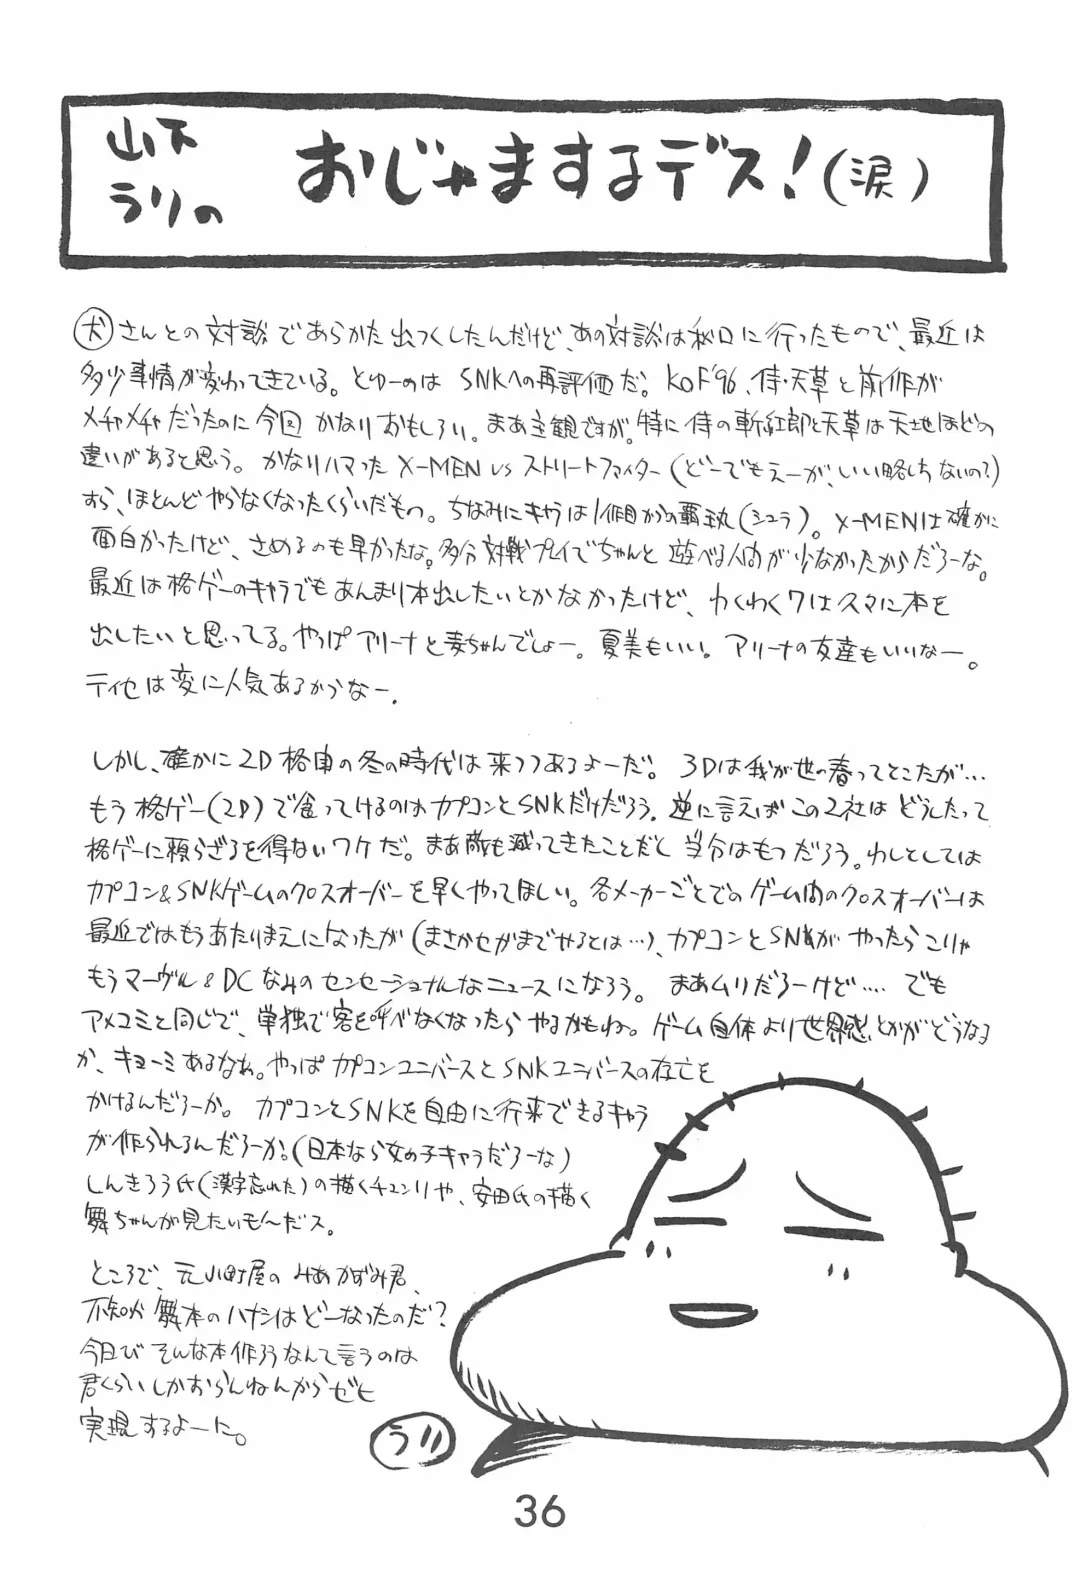 山下
ラリの
おじゃまするデス！（涙）
犬さんとの対談であらかた出つくしたんだけど、あの対談は秋口に行ったもので、最近は
多少事情が変わってきている。とゆーのは SNKへの再評価だ。KOF'96、侍・天草と前作が
メチャメチャだったのに今回かなりおもしろい。まあ主観ですが。特に侍の斬紅郎と天草は天地ほどの
違いがあると思う。かなりハマったX-MEN vs ストリートファイター（どーでもえーが、いい略しちないの?）
すら、ほとんどやらなくなったくらいだもの。ちなみにキャラは1作目からの覇王丸（シュラ）。X-MENは確かに
面白かったけど、さめるのも早かったな。多分対戦プレイでちゃんと遊べる人間が少なかったからだろーな。
最近は格ゲーのキャラでもあんまり本出したいとかなかったけど、わくわく7は久々に本を
出したいと思ってる。やっぱアリーナと麦ちゃんでしょー。夏美もいい。アリーナの友達もいいなー。
ティセは変に人気あるからなー。
しかし、確かに2D格闘の冬の時代は来つつあるよーだ。3Dは我が世の春ってとこだが…
もう格ゲー（2D）で食ってけるのはカプコンとSNKだけだろう。逆に言えばこの2社はどうしたって
格ゲーに頼らざるを得ないワケだ。まあ敵も減ってきたことだし当分はもつだろう。わしとしては
カプコン&SNKゲームのクロスオーバーを早くやってほしい。各メーカーごとでのゲーム間のクロスオーバーは
最近ではもうあたりまえになったが（まさかセガまでやるとは…）、カプコンとSNKがやったらこりゃ
もうマーヴル&DCなみのセンセーショナルなニュースになろう。まあムリだろーけど…. でも
アメコミと同じで、単独で客を呼べなくなったらやるかもね。ゲーム自体より世界感とかがどうなる
か、キョーミあるなぁ。やっぱカプコンユニバースとSNKユニバースの存亡を
かけるんだろーか。カプコンとSNKを自由に行来できるキャラ
が作られるんだろーか。（日本なら女の子キャラだろーな）
しんきろう氏（漢字忘れた）の描くチュンリや、安田氏の描く
舞ちゃんが見たいもんだス。
ところで、元小町屋のみあかずみ君、
不知火舞本のハナシはどーなったのだ?
今日びそんな本作ろうなんて言うのは
君くらいしかおらんねんからゼヒ
実現するよーに。
ラリ
36